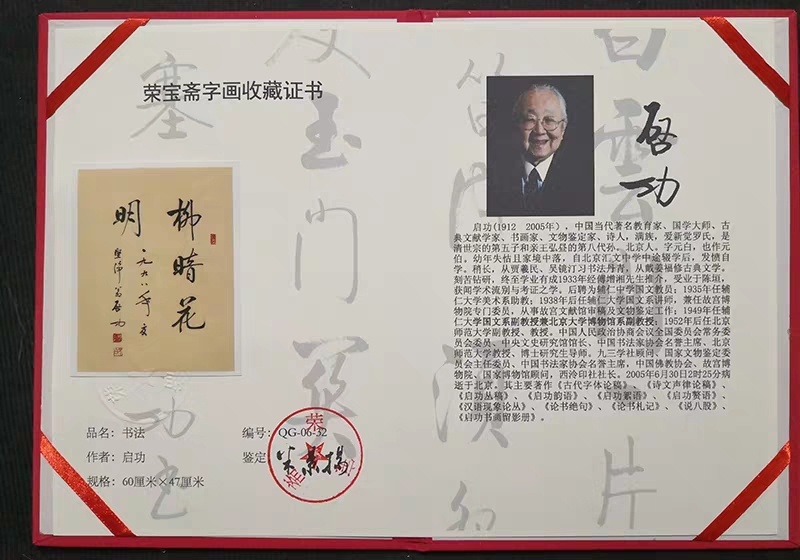 荣宝斋字画收藏证书
柳暗花
明
一九九八年
启功
品名：书法
作者：启功
规格：60厘米×47厘米
编号：QG-06-32
鉴定
荣
米景扬
启功
启功(1912 2005年)，中国当代著名教育家、国学大师、古
典文献学家、书画家、文物鉴定家、诗人，满族，爱新觉罗氏，是
清世宗的第五子和亲王弘昼的第八代孙，北京人。字元白，也作元
伯，幼年失怙且家境中落，自北京汇文中学中途辍学后，发愤自
学。稍长，从贾羲民、吴镜汀习书法丹青，从戴姜福修古典文学。
刻苦钻研，终至学业有成1933年经傅增湘先生推介，受业于陈垣，
获闻学术流别与考证之学。后聘为辅仁中学国文教员；1935年任辅
仁大学美术系助教；1938年后任辅仁大学国文系讲师，兼任故宫博
物院专门委员，从事故宫文献馆审稿及文物鉴定工作；1949年任辅
仁大学国文系副教授兼北京大学博物馆系副教授；1952年后任北京
师范大学副教授、教授。中国人民政治协商会议全国委员会常务委
员会委员、中央文史研究馆馆长、中国书法家协会名誉主席，北京
师范大学教授、博士研究生导师。九三学社顾问、国家文物鉴定委
员会主任委员、中国书法家协会名誉主席，中国佛教协会、故宫博
物院、国家博物馆顾问，西泠印社社长。2005年6月30日2时25分病
逝于北京。其主要著作《古代字体论稿》、《诗文声律论稿》、
《启功丛稿》、《启功韵语》、《启功絮语》、《启功赘语》、
《汉语现象论丛》、《论书绝句》、《论书札记》、《说八股》、
《启功书画留影册》。